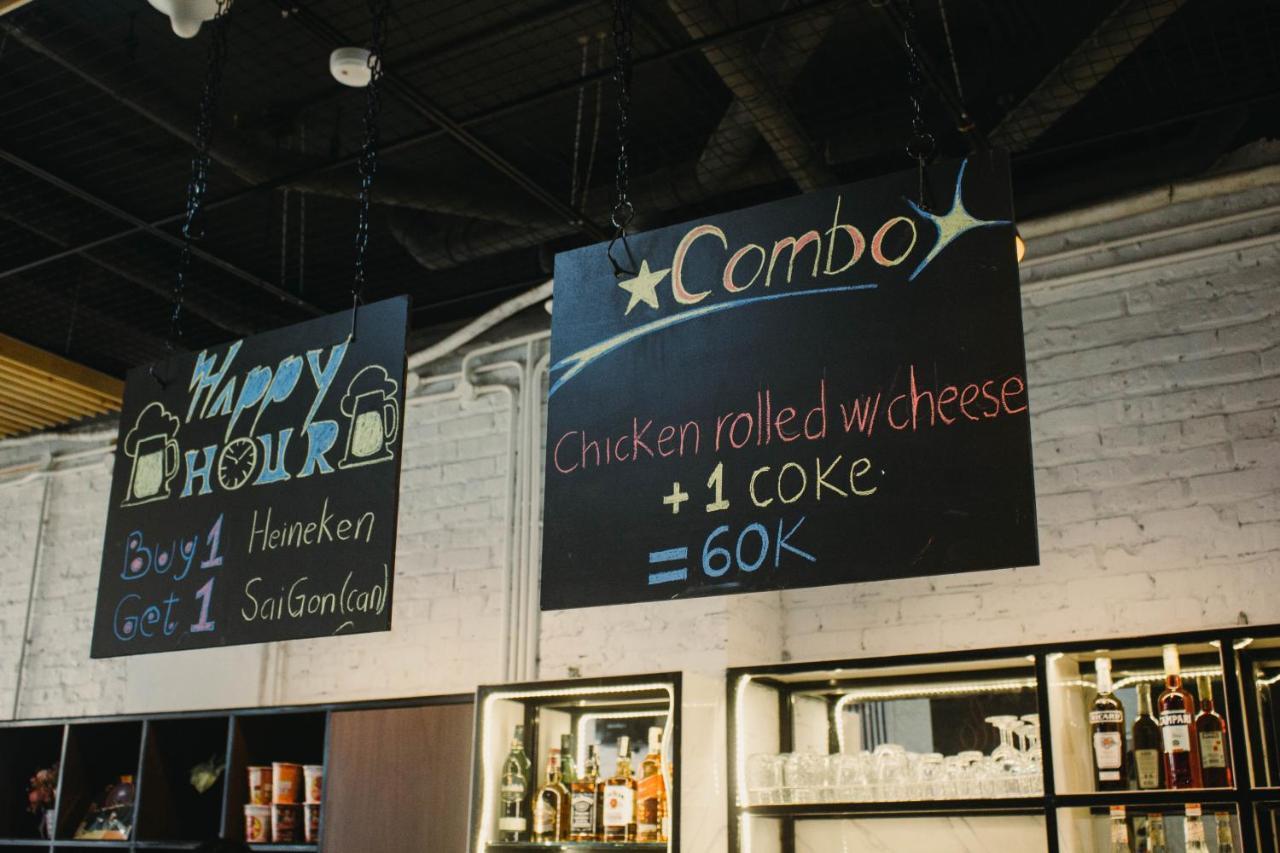 Happy
HOUR
Buy 1
Get 1
Heineken
SaiGon(can)
Combo
Chicken rolled w/cheese
+ 1 COKE.
= 60K
RICARD
CAMPARI